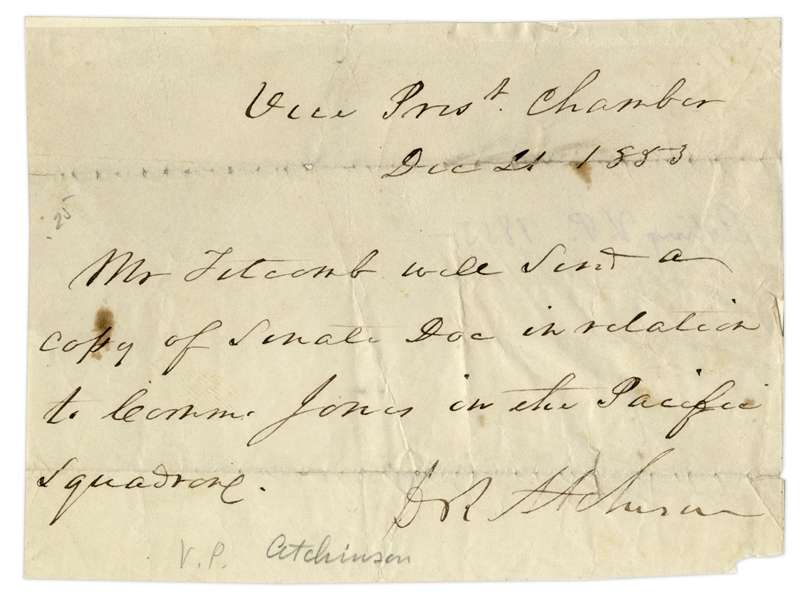 Vice Prest. Chamber
Dec 21 1853
25
Mr Titcomb will send a
copy of Senate Doc in relation
to Comm. Jones in the Pacific
Squadron.
D R Atchison
V.P. Atchinson